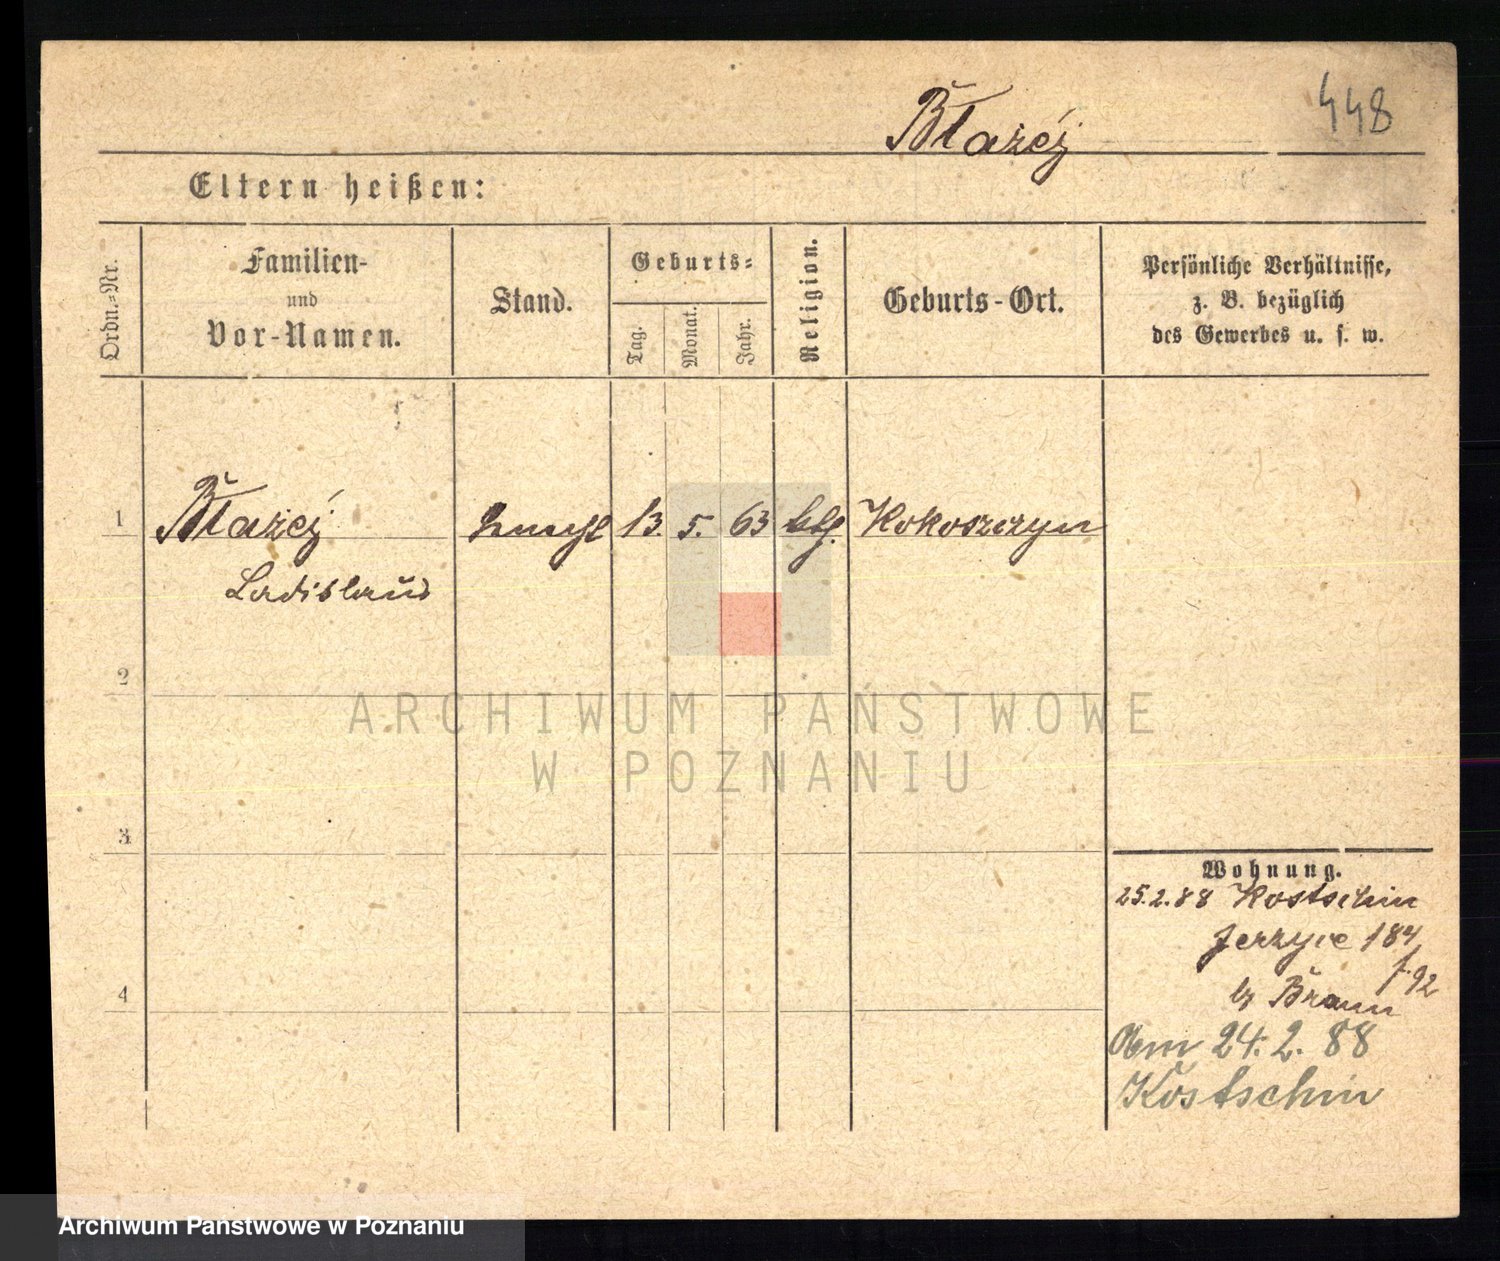 448
Błażéj
Eltern heißen:
Ordn.-Nr.
Familien-
und
Vor-Namen.
Stand.
Geburts-
Tag.
Monat.
Jahr.
Religion.
Geburts-Ort.
Persönliche Verhältnisse,
z. B. bezüglich
des Gewerbes u. s. w.
1 Błażéj 13. 5. 63 Kokoszczyn
Ladislaus
2
ARCHIWUM PAŃSTWOWE
W POZNANIU
3
Wohnung.
25.2.88 Kostschin
Jerzyce 184
b/ Braun
4
Abm 24. 2. 88
Kostschin
Archiwum Państwowe w Poznaniu